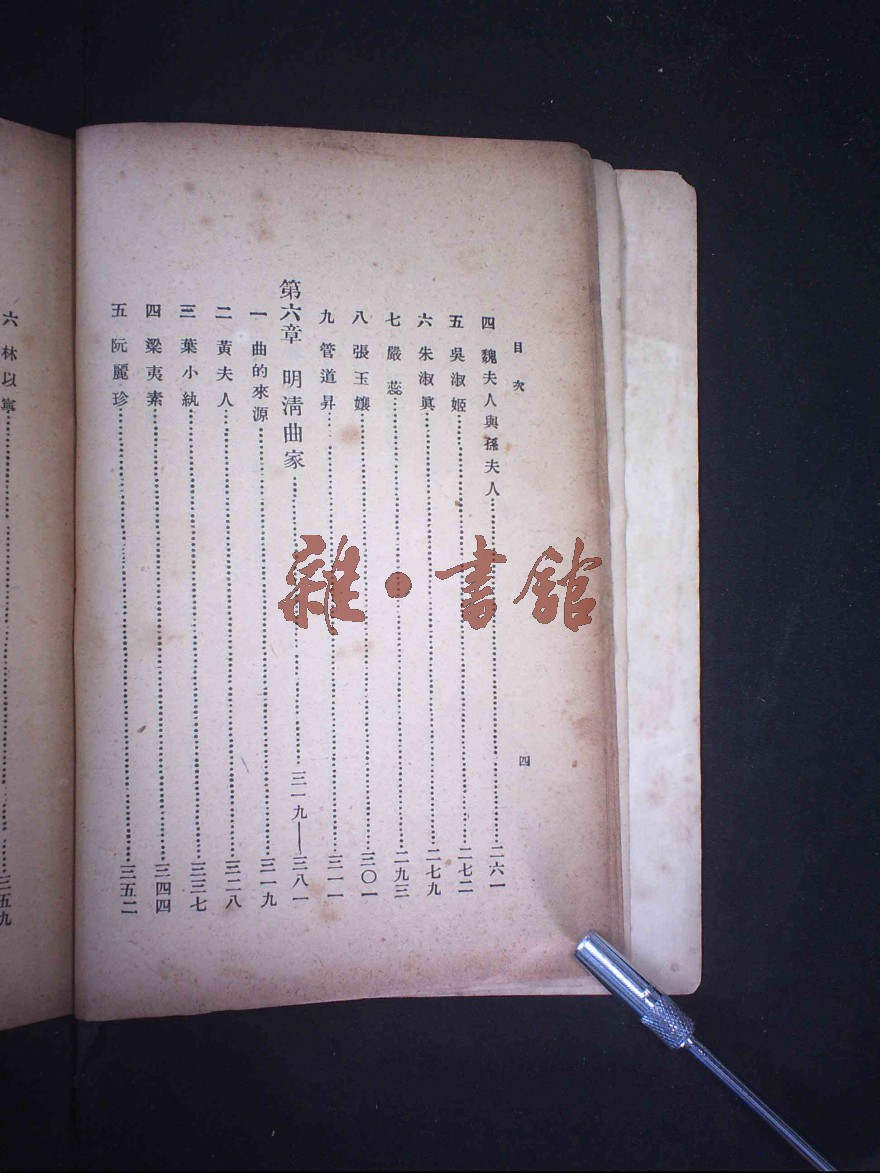 目次
四
四 魏夫人與孫夫人……二六一
五 吳淑姬……二七二
六 朱淑眞……二七九
七 嚴蕊……二九三
八 張玉孃……三〇一
九 管道昇……三一一
第六章 明淸曲家……三一九——三八一
一 曲的來源……三一九
二 黃夫人……三二八
三 葉小紈……三三七
四 梁夷素……三四四
五 阮麗珍……三五二
六 林以寧……三五九
雜·書館